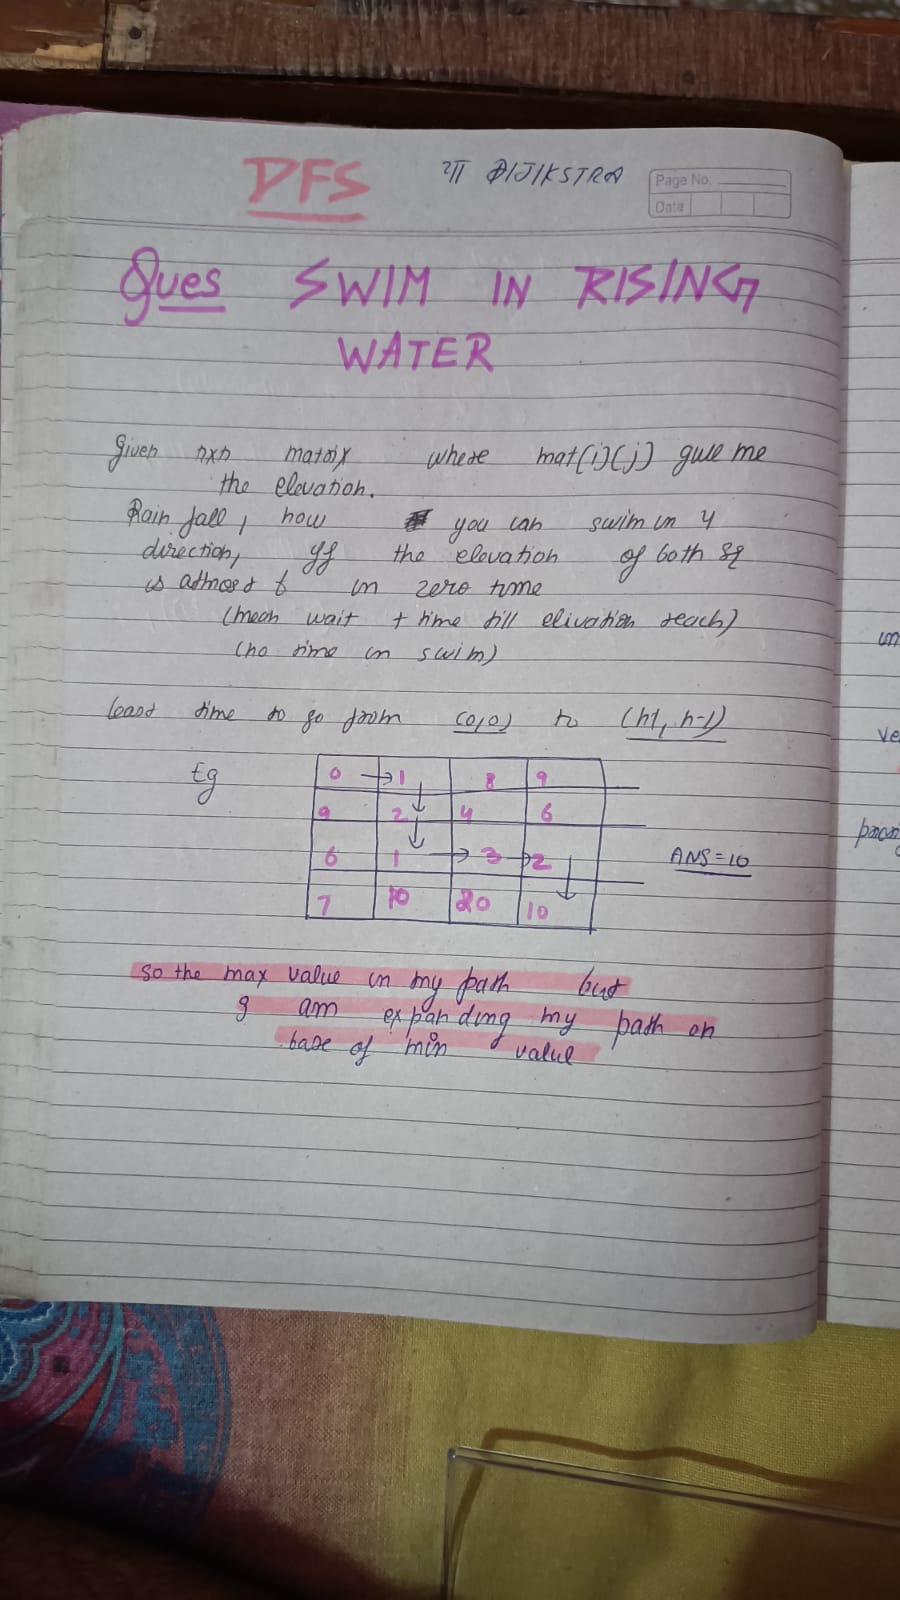 DFS
या DIJIKSTRA
Page No.
Date
Ques SWIM IN RISING
WATER
Given nxn matrix where mat(i)(j) give me
the elevation.
Rain fall, now you can swim in 4
direction, iff the elevation of both sq
is atmost t in zero time
(mean wait t time till elivation reach)
(no time in swim)
least time to go from (0,0) to (n-1, n-1)
Eg
0 → 1 8 9
9 2 4 6
6 1 → 3 → 2 ANS = 10
7 10 20 10
so the max value in my path but
I am expanding my path on
base of min value
un
ve